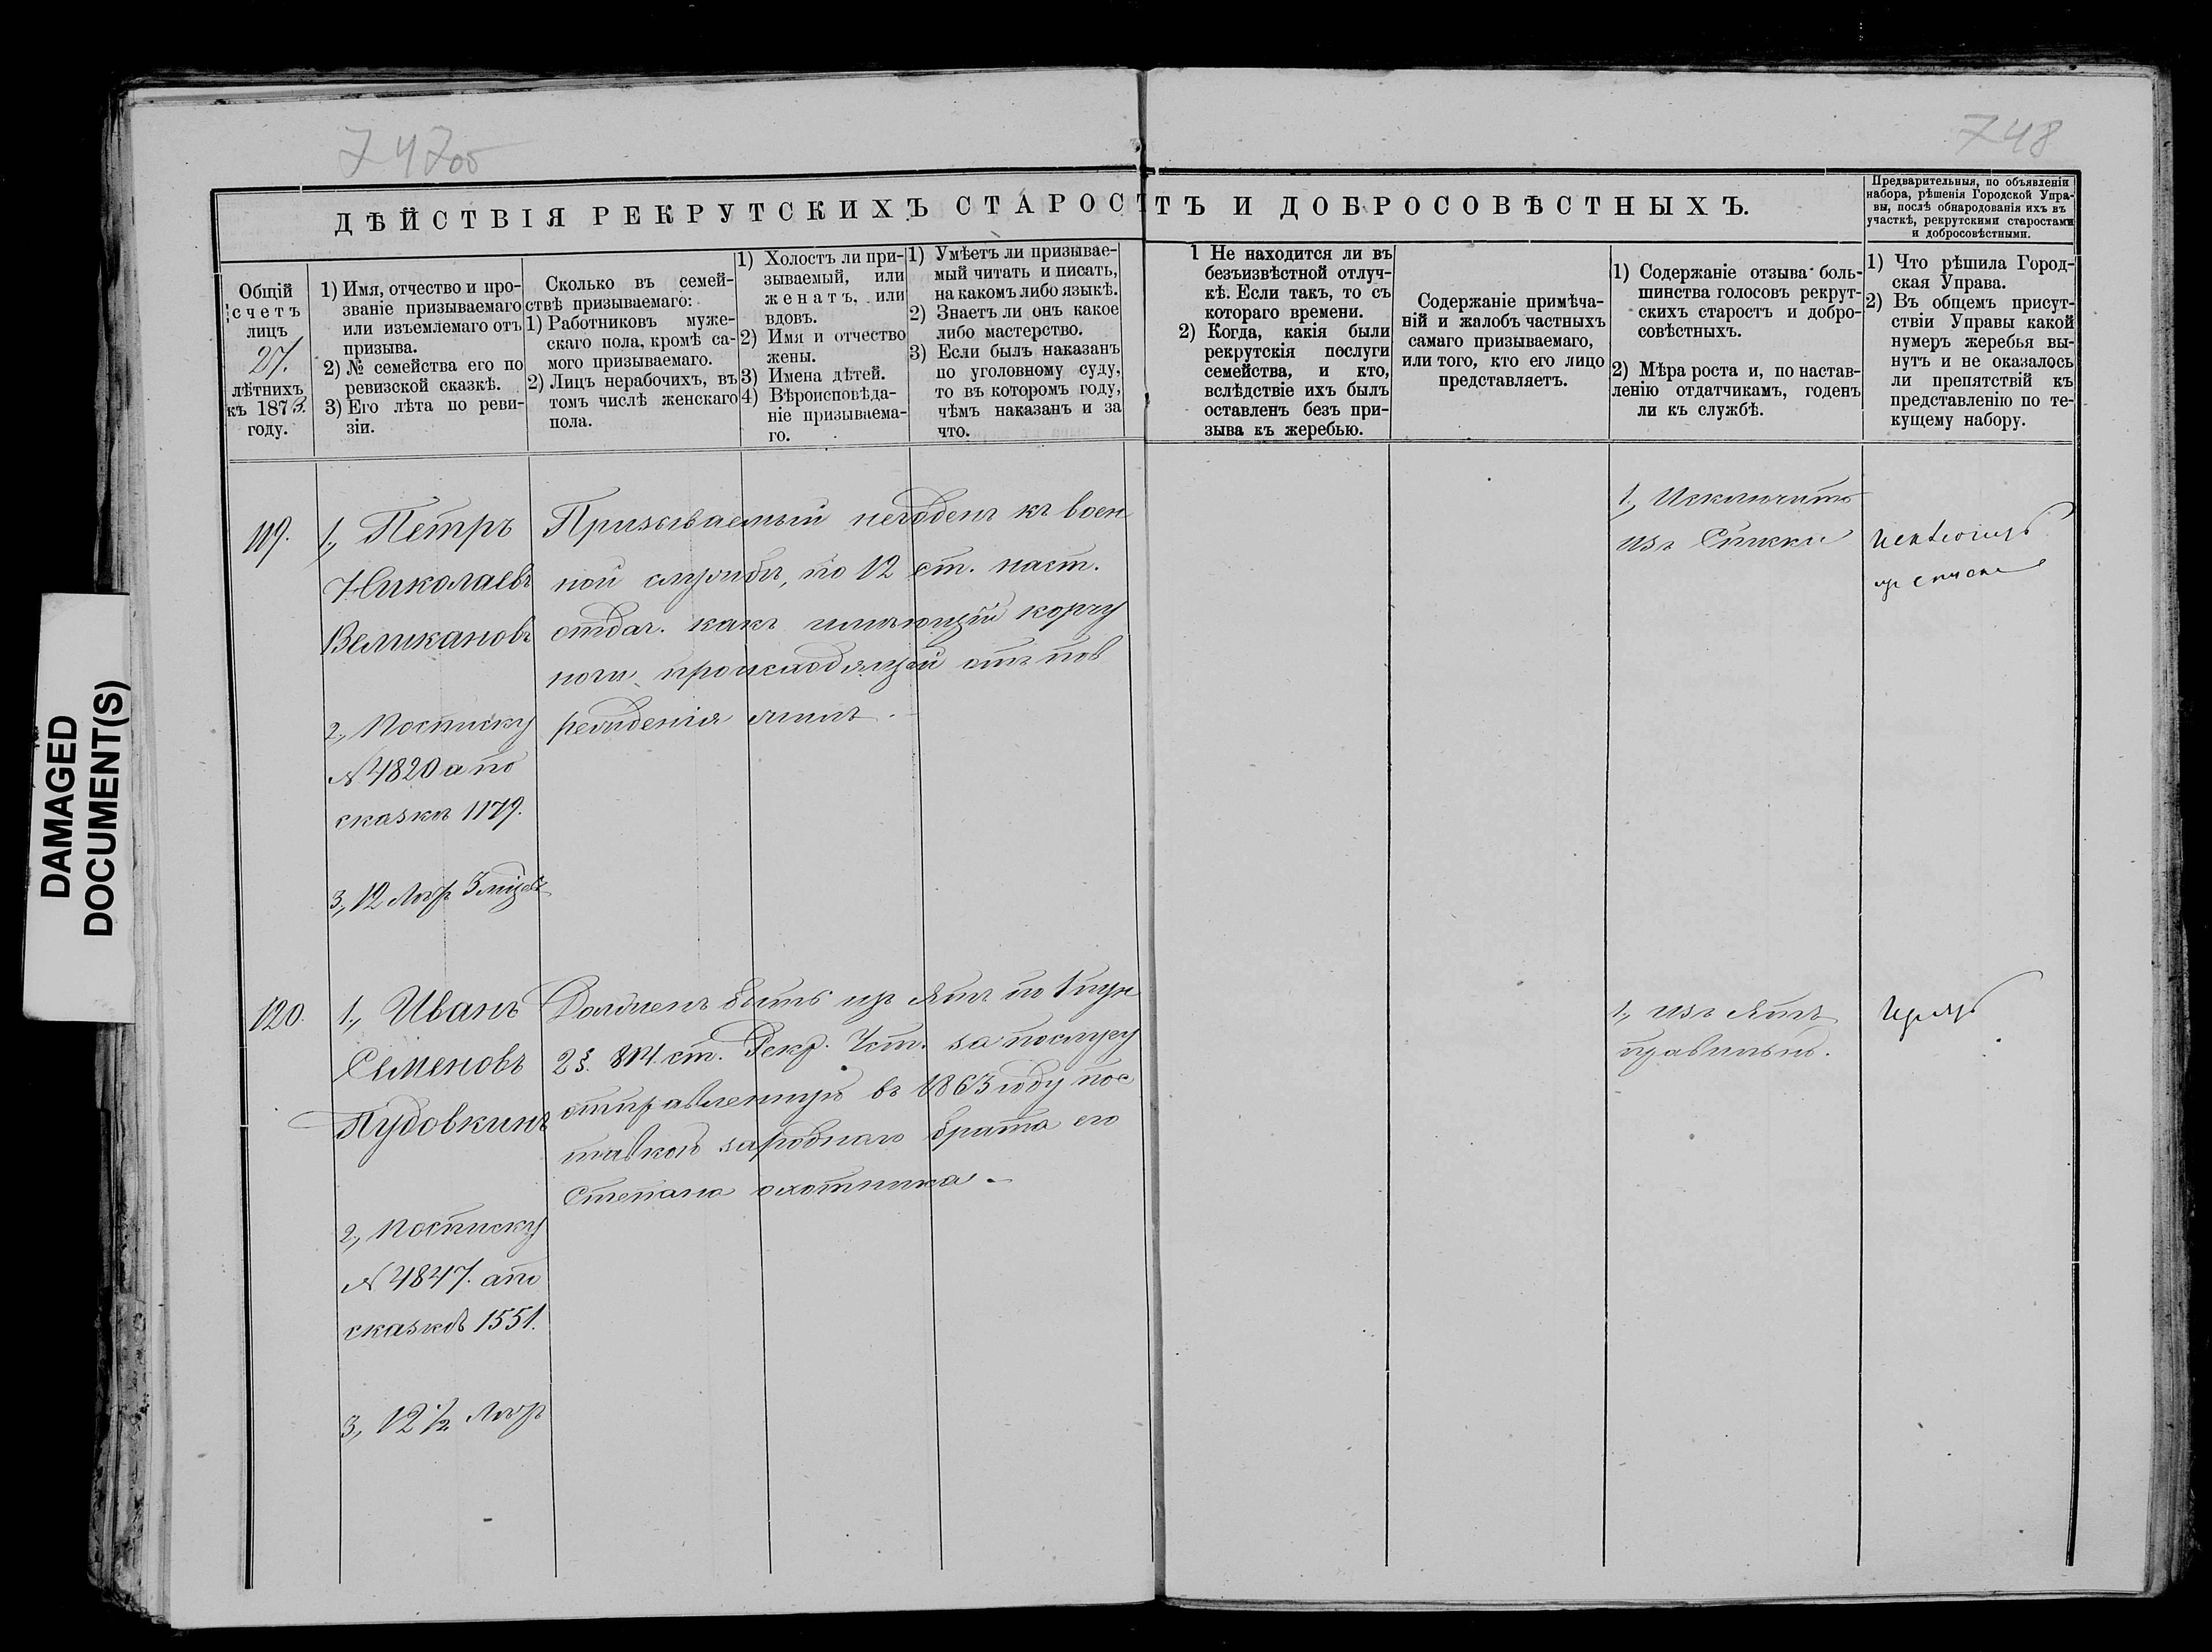 747об
748
ДѢЙСТВІЯ РЕКРУТСКИХЪ СТАРОСТЪ И ДОБРОСОВѢСТНЫХЪ.
Предварительныя, по объявленіи
набора, рѣшенія Городской Упра-
вы, послѣ обнародованія ихъ въ
участкѣ, рекрутскими старостами
и добросовѣстными.
Общій
счетъ
лицъ
27.
лѣтнихъ
къ 1873.
году.
1) Имя, отчество и про-
званіе призываемаго
или изъемлемаго отъ
призыва.
2) № семейства его по
ревизской сказкѣ.
3) Его лѣта по реви-
зіи.
Сколько въ семей-
ствѣ призываемаго:
1) Работниковъ муже-
скаго пола, кромѣ са-
мого призываемаго.
2) Лицъ нерабочихъ, въ
томъ числѣ женскаго
пола.
1) Холостъ ли при-
зываемый, или
женатъ, или
вдовъ.
2) Имя и отчество
жены.
3) Имена дѣтей.
4) Вѣроисповѣда-
ніе призываема-
го.
1) Умѣетъ ли призывае-
мый читать и писать,
на какомъ либо языкѣ.
2) Знаетъ ли онъ какое
либо мастерство.
3) Если былъ наказанъ
по уголовному суду,
то въ которомъ году,
чѣмъ наказанъ и за
что.
1 Не находится ли въ
безъизвѣстной отлуч-
кѣ. Если такъ, то съ
котораго времени.
2) Когда, какія были
рекрутскія послуги
семейства, и кто,
вслѣдствіе ихъ былъ
оставленъ безъ при-
зыва къ жеребью.
Содержаніе примѣча-
ній и жалобъ частныхъ
самаго призываемаго,
или того, кто его лицо
представляетъ.
1) Содержаніе отзыва боль-
шинства голосовъ рекрут-
скихъ старостъ и добро-
совѣстныхъ.
2) Мѣра роста и, по настав-
ленію отдатчикамъ, годенъ
ли къ службѣ.
1) Что рѣшила Город-
ская Управа.
2) Въ общемъ присут-
ствіи Управы какой
нумеръ жеребья вы-
нутъ и не оказалось
ли препятствій къ
представленію по те-
кущему набору.
119.
1., Петръ
Николаевъ
Великановъ
2., По списку
№ 4820 а по
сказкѣ 1179.
3., 12 лѣтъ
Призываемый негоденъ къ воен
ной службѣ, по 12 ст. наст.
отдач. какъ имѣющій корчу
ноги происходящей отъ пов
режденія
1., Исключить
изъ Списка
исключить
изъ списка
120.
1., Иванъ
Семеновъ
Пудовкинъ
2., По списку
№ 4847. а по
сказкѣ 1551.
3., 12 ½ лѣтъ
Долженъ быть изъятъ по 1 пун
2 §. 814. ст. Рекр. Уст. за послугу
отправленную въ 1863 году пос
тавкою за роднаго брата его
Степана охотника.
1., изъятъ
правильно.
Изъять
DAMAGED
DOCUMENT(S)